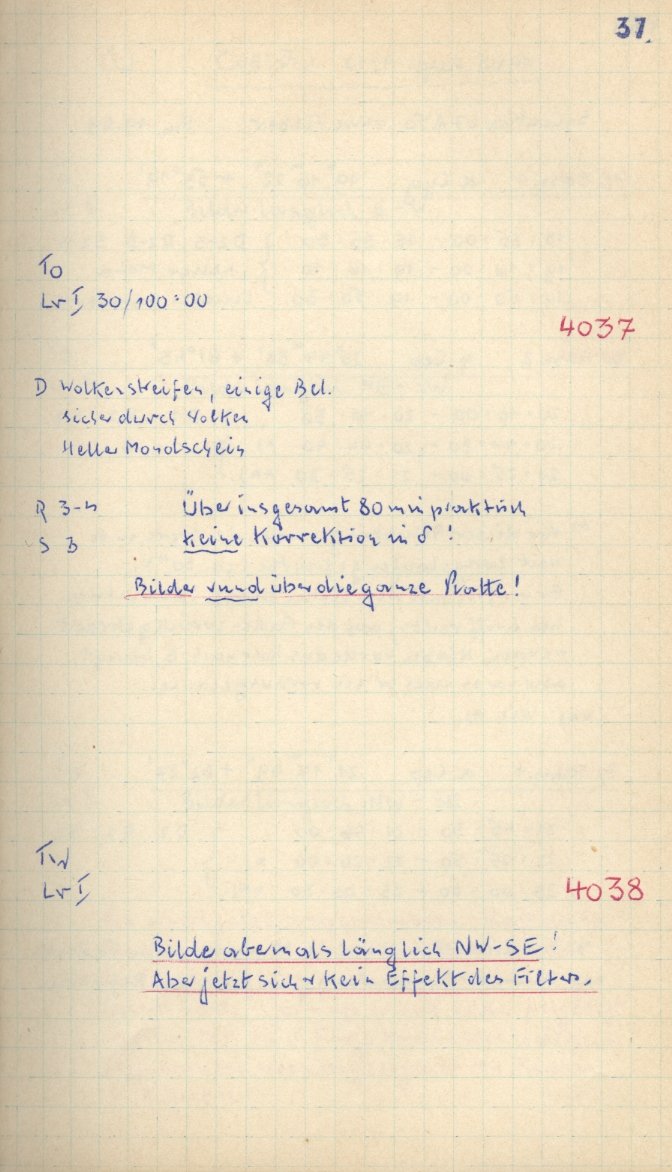 37.
To
Lr I 30/100:00
4037
D Wolkenstreifen, einige Bel.
sicher durch Wolken
Heller Mondschein
R 3-4 Über insgesamt 80min praktisch
S 3 keine Korrektion in δ!
Bilder rund über die ganze Platte!
Tw
Lr I
4038
Bilder abermals länglich NW-SE!
Aber jetzt sicher kein Effekt des Filters.